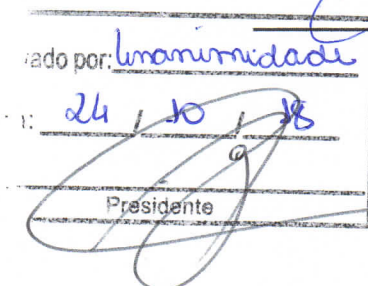 ado por: Unanimidade
: 24 / 10 / 18
Presidente